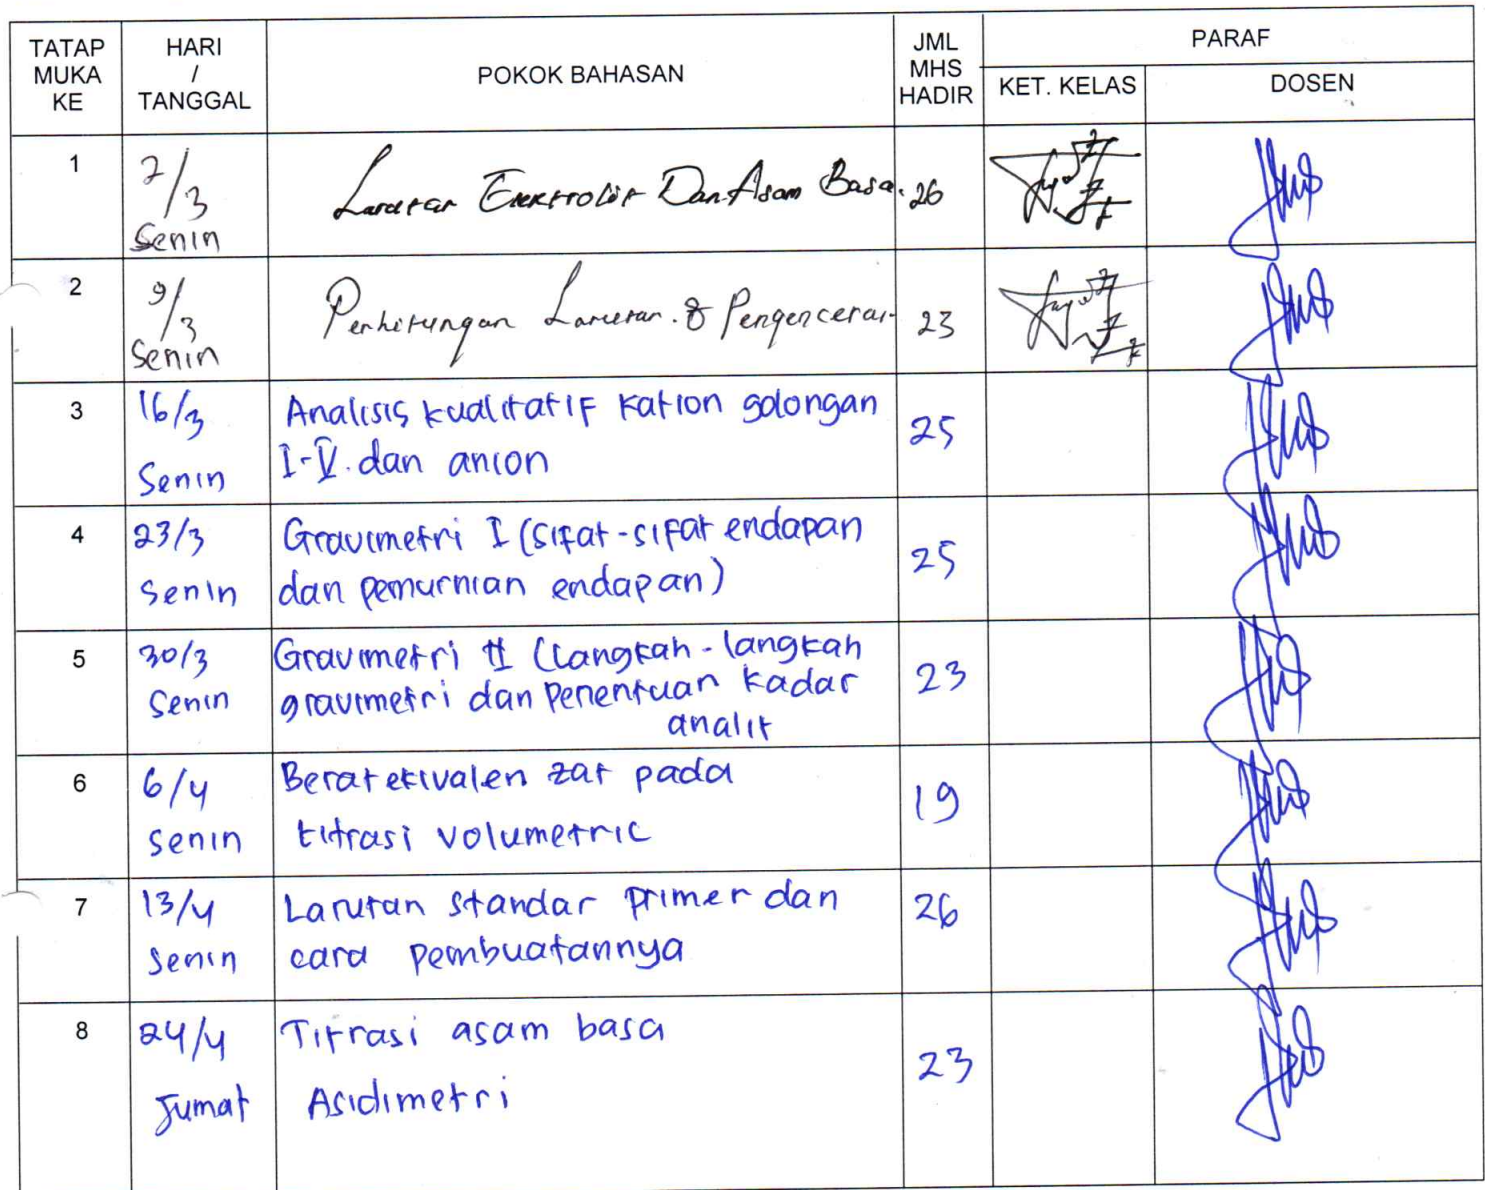 TATAP MUKA KE
HARI / TANGGAL
POKOK BAHASAN
JML MHS HADIR
PARAF
KET. KELAS
DOSEN
1
2/3
Senin
Larutan Elektrolit Dan Asam Basa.
26
2
9/3
Senin
Perhitungan Larutan. & Pengenceran
23
3
16/3
Senin
Analisis kualitatif kation golongan
I-V. dan anion
25
4
23/3
Senin
Gravimetri I (sifat-sifat endapan
dan pemurnian endapan)
25
5
30/3
Senin
Gravimetri II (Langkah-langkah
gravimetri dan penentuan kadar
analit
23
6
6/4
Senin
Berat ekivalen zat pada
titrasi volumetric
19
7
13/4
Senin
Larutan standar primer dan
cara pembuatannya
26
8
24/4
Jumat
Titrasi asam basa
Asidimetri
23